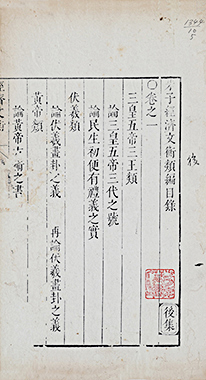 朱子經濟文衡類編目錄
後集
○卷之一
三皇五帝三王類
論三皇五帝三代之號
論民生初便有禮義之實
伏羲類
論伏羲畫卦之義 再論伏羲畫卦之義
黃帝類
論黃帝古𥦗之書